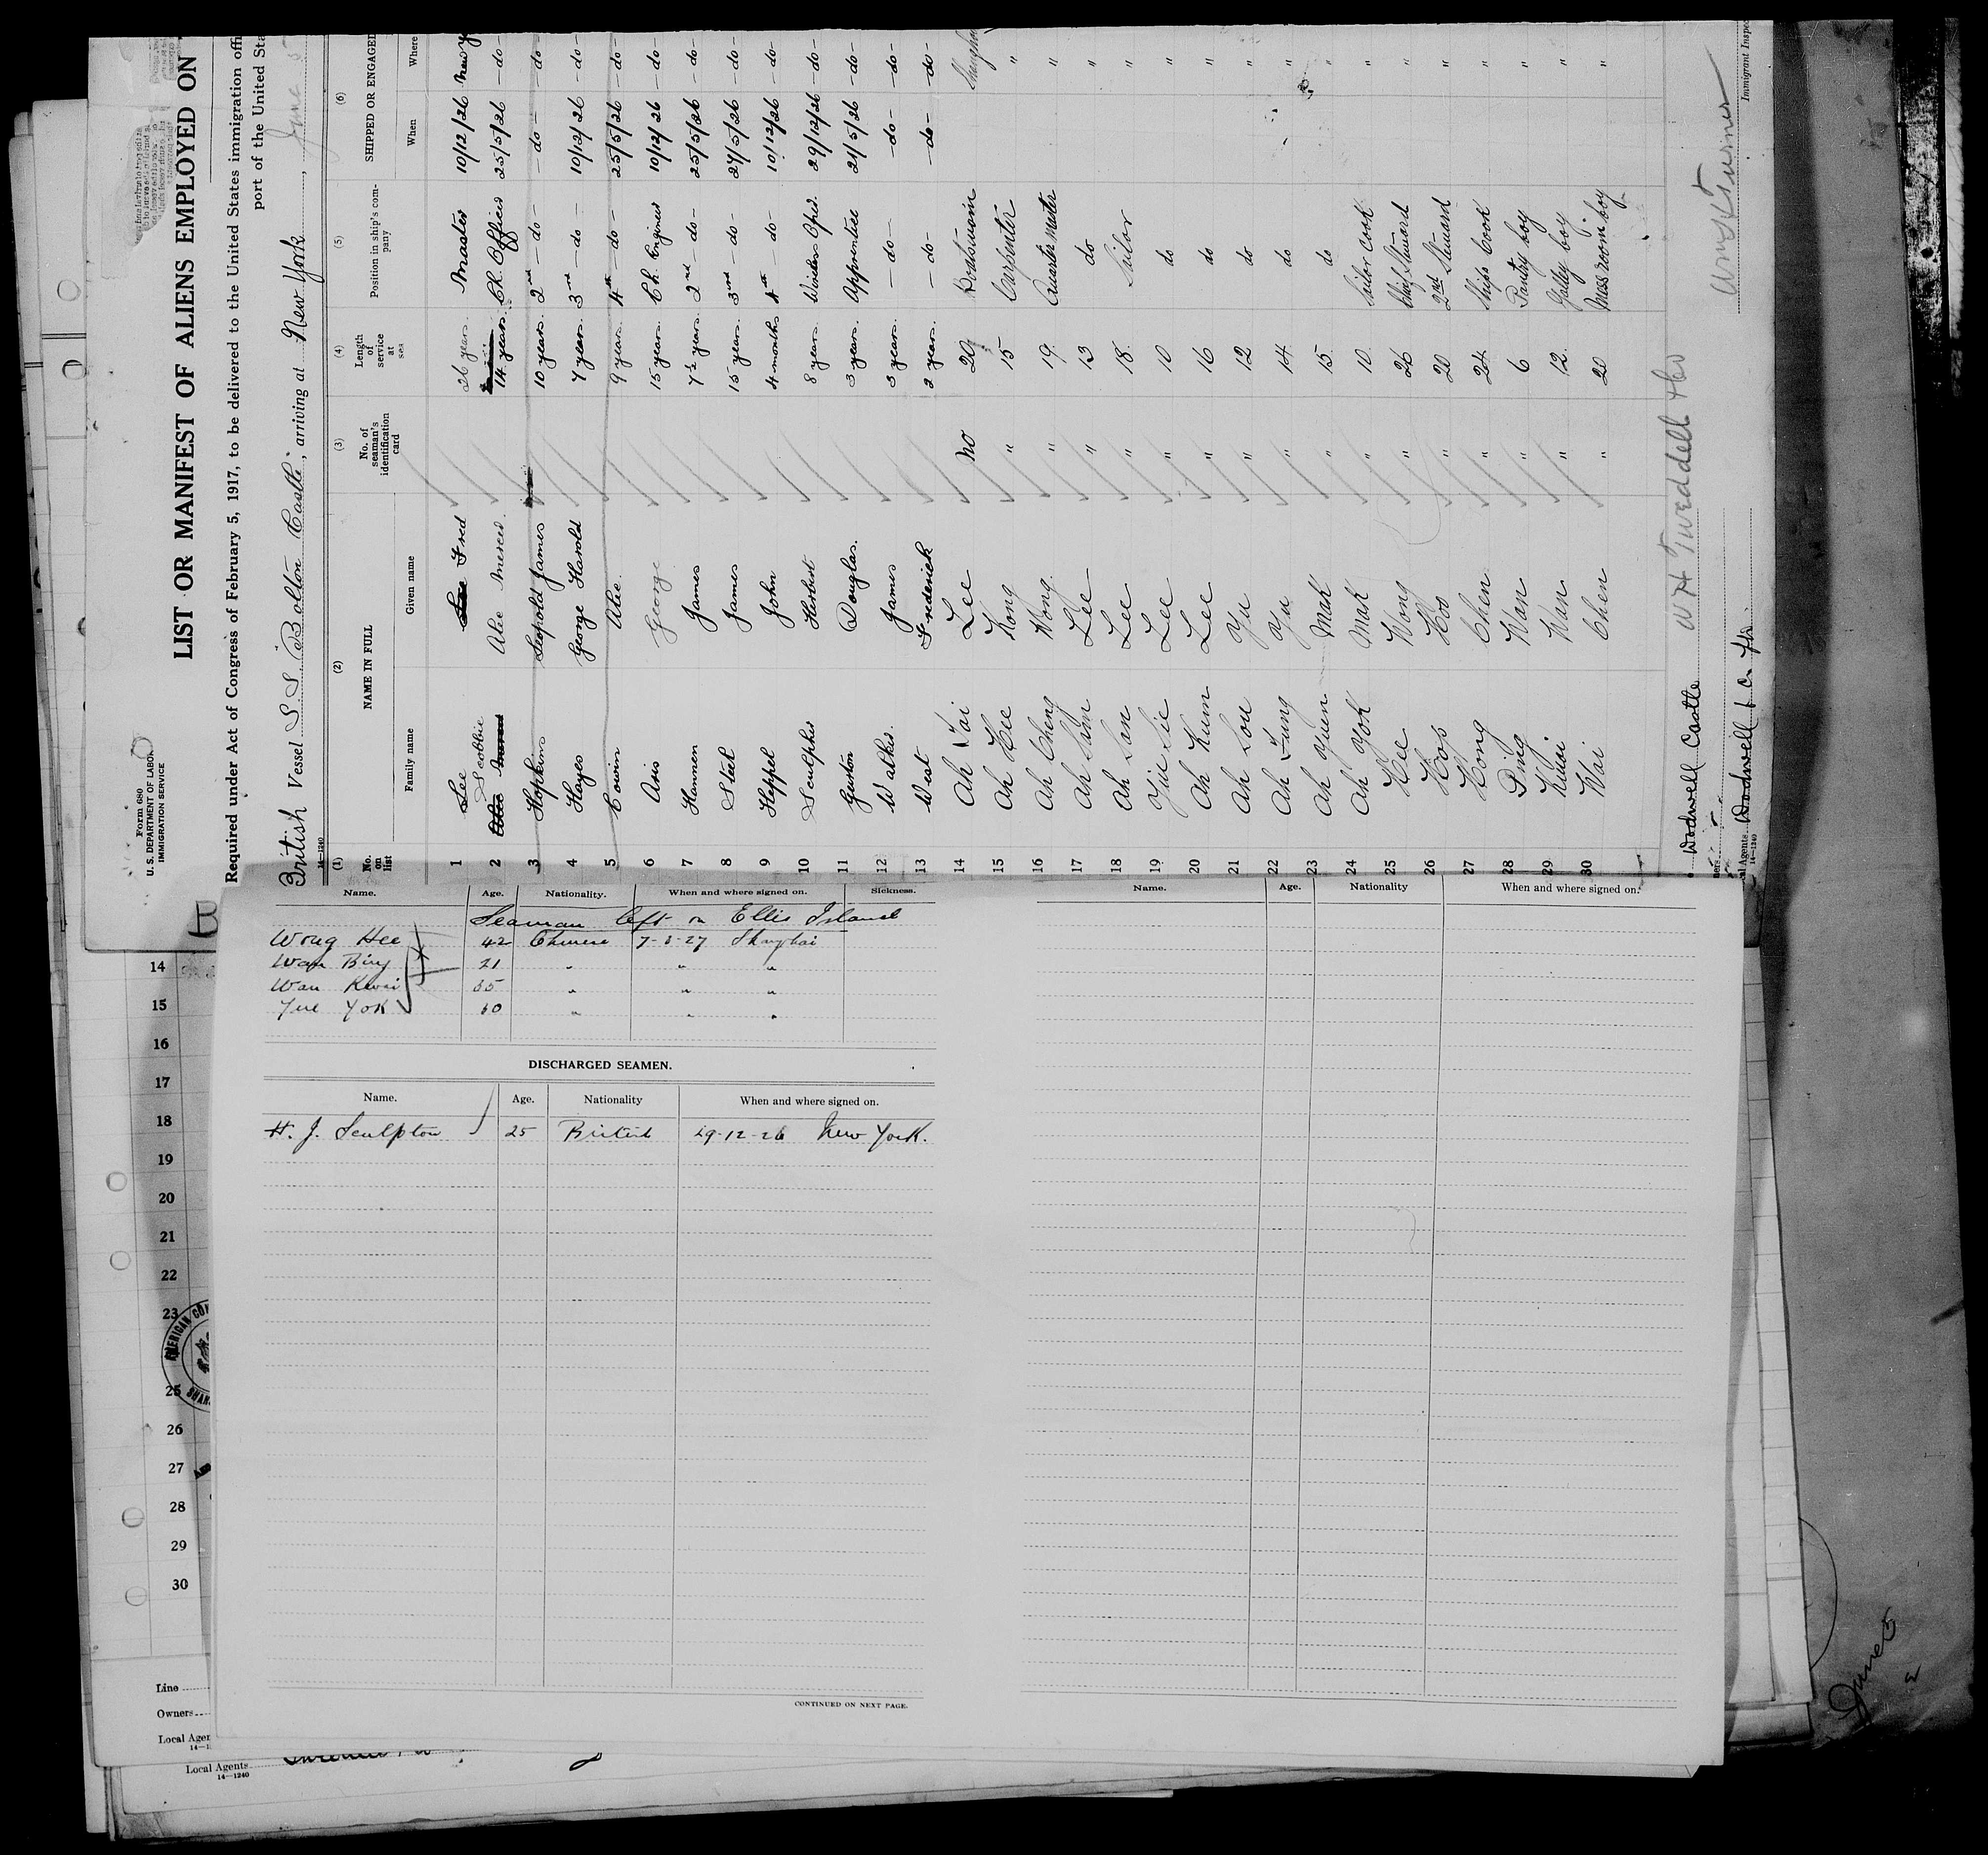 Form 680
U. S. DEPARTMENT OF LABOR
IMMIGRATION SERVICE
LIST OR MANIFEST OF ALIENS EMPLOYED ON
Required under Act of Congress of February 5, 1917, to be delivered to the United States immigration offi
port of the United Sta
British Vessel S. S. Bolton Castle, arriving at New York, June 5
14—1240
(1) (2) (3) (4) (5) (6)
No. on list NAME IN FULL No. of seaman's identification card Length of service at sea Position in ship's company SHIPPED OR ENGAGED
Family name Given name When Where
1 Lee Fred 26 years. Master 10/12/26 New Y
2 Scobbie Alec 14 years. Ch. Officer 25/5/26 -do-
3 Hopkins Leopold James 10 years. 2nd -do- -do- -do-
4 Hayes George Harold 7 years. 3rd -do- 10/12/26 -do-
5 Cowin Alec 9 years. 4th -do- 25/5/26 -do-
6 George 15 years. Ch. Engineer 10/12/26 -do-
7 Hannen James 7½ years. 2nd -do- 25/5/26 -do-
8 Steel James 15 years. 3rd -do- 27/5/26 -do-
9 Heppel John 4 months 4th -do- 10/12/26 -do-
10 Sculpher Herbert 8 years. Wireless Oprd. 29/12/26 -do-
11 Gunton Douglas. 3 years. Apprentice 21/5/26 -do-
12 Walker. James 3 years. -do- -do- -do-
13 West Frederick 3 years. -do- -do- -do-
14 Ah Tai Lee No 20 Boatswain Shanghai
15 Ah Hee Kong " 15 Carpenter "
16 Ah Cheng Wong " 19. Quarter Master "
17 Ah San Lee " 13 do "
18 Ah Lan Lee " 18. Sailor "
19 Yin Sie Lee " 10 do "
20 Ah Kum Lee " 16 do "
21 Ah Lou Yu " 12 do "
22 Ah Fung Yu " 14. do "
23 Ah Yuen Mak " 15. do "
24 Ah Yok Mak " 10. Sailor cook "
25 Hee Wong " 26 Chief Steward "
26 Hop Hoo " 20 2nd Steward "
27 Hong Chen " 24 Ships Cook "
28 Ping Wan " 6 Pantry boy "
29 Kwei Wan " 12. Galley boy "
30 Wai Chen " 20 Mess room boy "
Dodwell Castle W H Tweddell & Co
ners
al Agents Dodwell & Co
14—1240
Immigrant Inspec
B
Name. Age. Nationality. When and where signed on. Sickness.
Seaman left on Ellis Island
Wong Hee 42 Chinese 7-3-27 Shanghai
Wan Bing 21 " " "
Wan Kwei 35 " " "
Yue York 30 " " "
DISCHARGED SEAMEN.
Name. Age. Nationality When and where signed on.
H. J. Sculpton 25 British 29-12-26 New York.
CONTINUED ON NEXT PAGE.
Name. Age. Nationality When and where signed on.
14
15
16
17
18
19
20
21
22
23
25
26
27
28
29
30
AMERICAN CON
SHAN
Line
Owners
Local Agen
14—1
Local Agents
14—1240
June 5